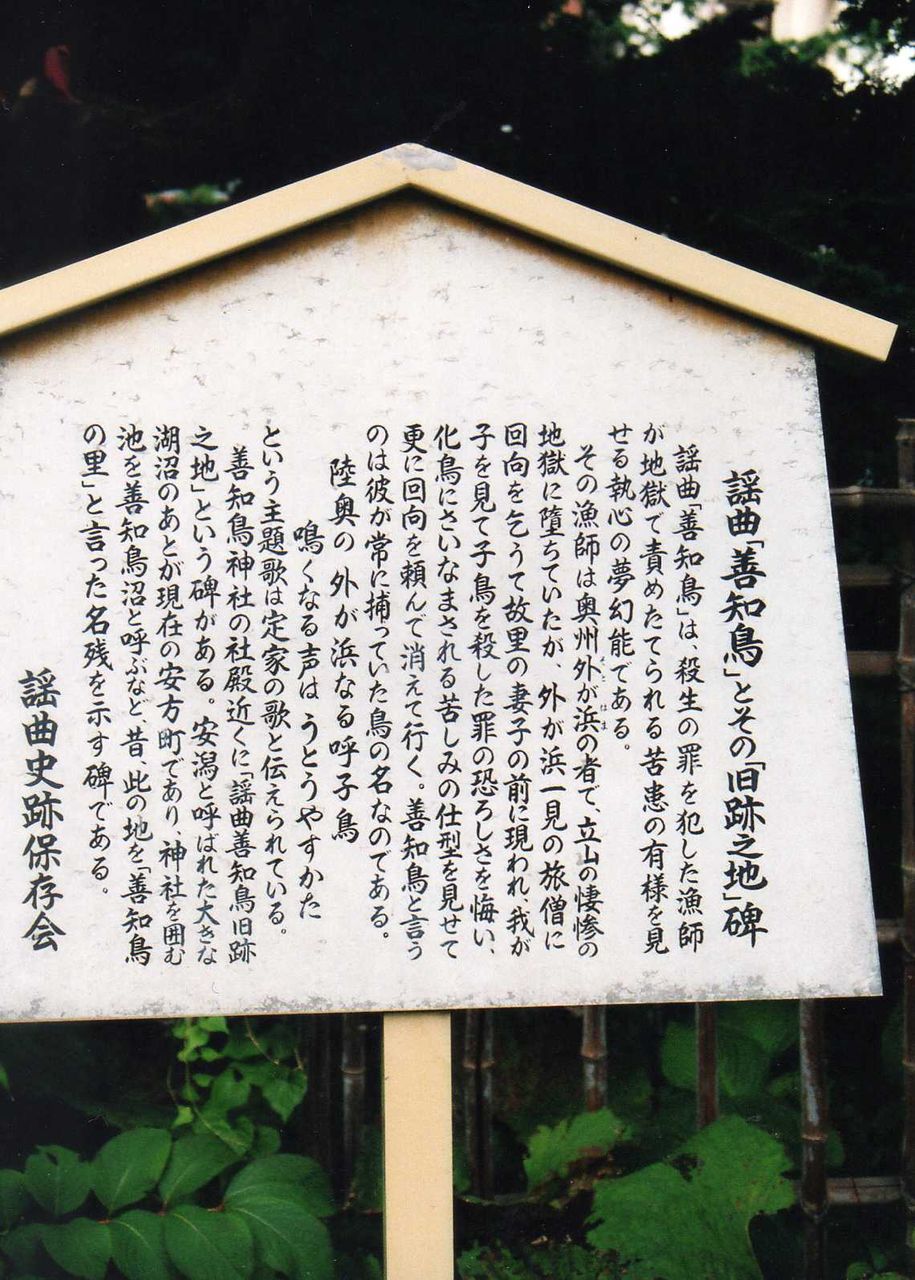 謡曲「善知鳥」とその「旧跡之地」碑
謡曲「善知鳥」は、殺生の罪を犯した漁師
が地獄で責めたてられる苦患の有様を見
せる執心の夢幻能である。
その漁師は奥州外が浜の者で、立山の悽惨の
地獄に墮ちていたが、外が浜一見の旅僧に
回向を乞うて故里の妻子の前に現われ、我が
子を見て子鳥を殺した罪の恐ろしさを悔い、
化鳥にさいなまされる苦しみの仕型を見せて
更に回向を頼んで消えて行く。善知鳥と言う
のは彼が常に捕っていた鳥の名なのである。
陸奥の 外が浜なる呼子鳥
鳴くなる声は うとうやすかた
という主題歌は定家の歌と伝えられている。
善知鳥神社の社殿近くに「謡曲善知鳥旧跡
之地」という碑がある。安潟と呼ばれた大きな
湖沼のあとが現在の安方町であり、神社を囲む
池を善知鳥沼と呼ぶなど、昔、此の地を「善知鳥
の里」と言った名残を示す碑である。
謡曲史跡保存会